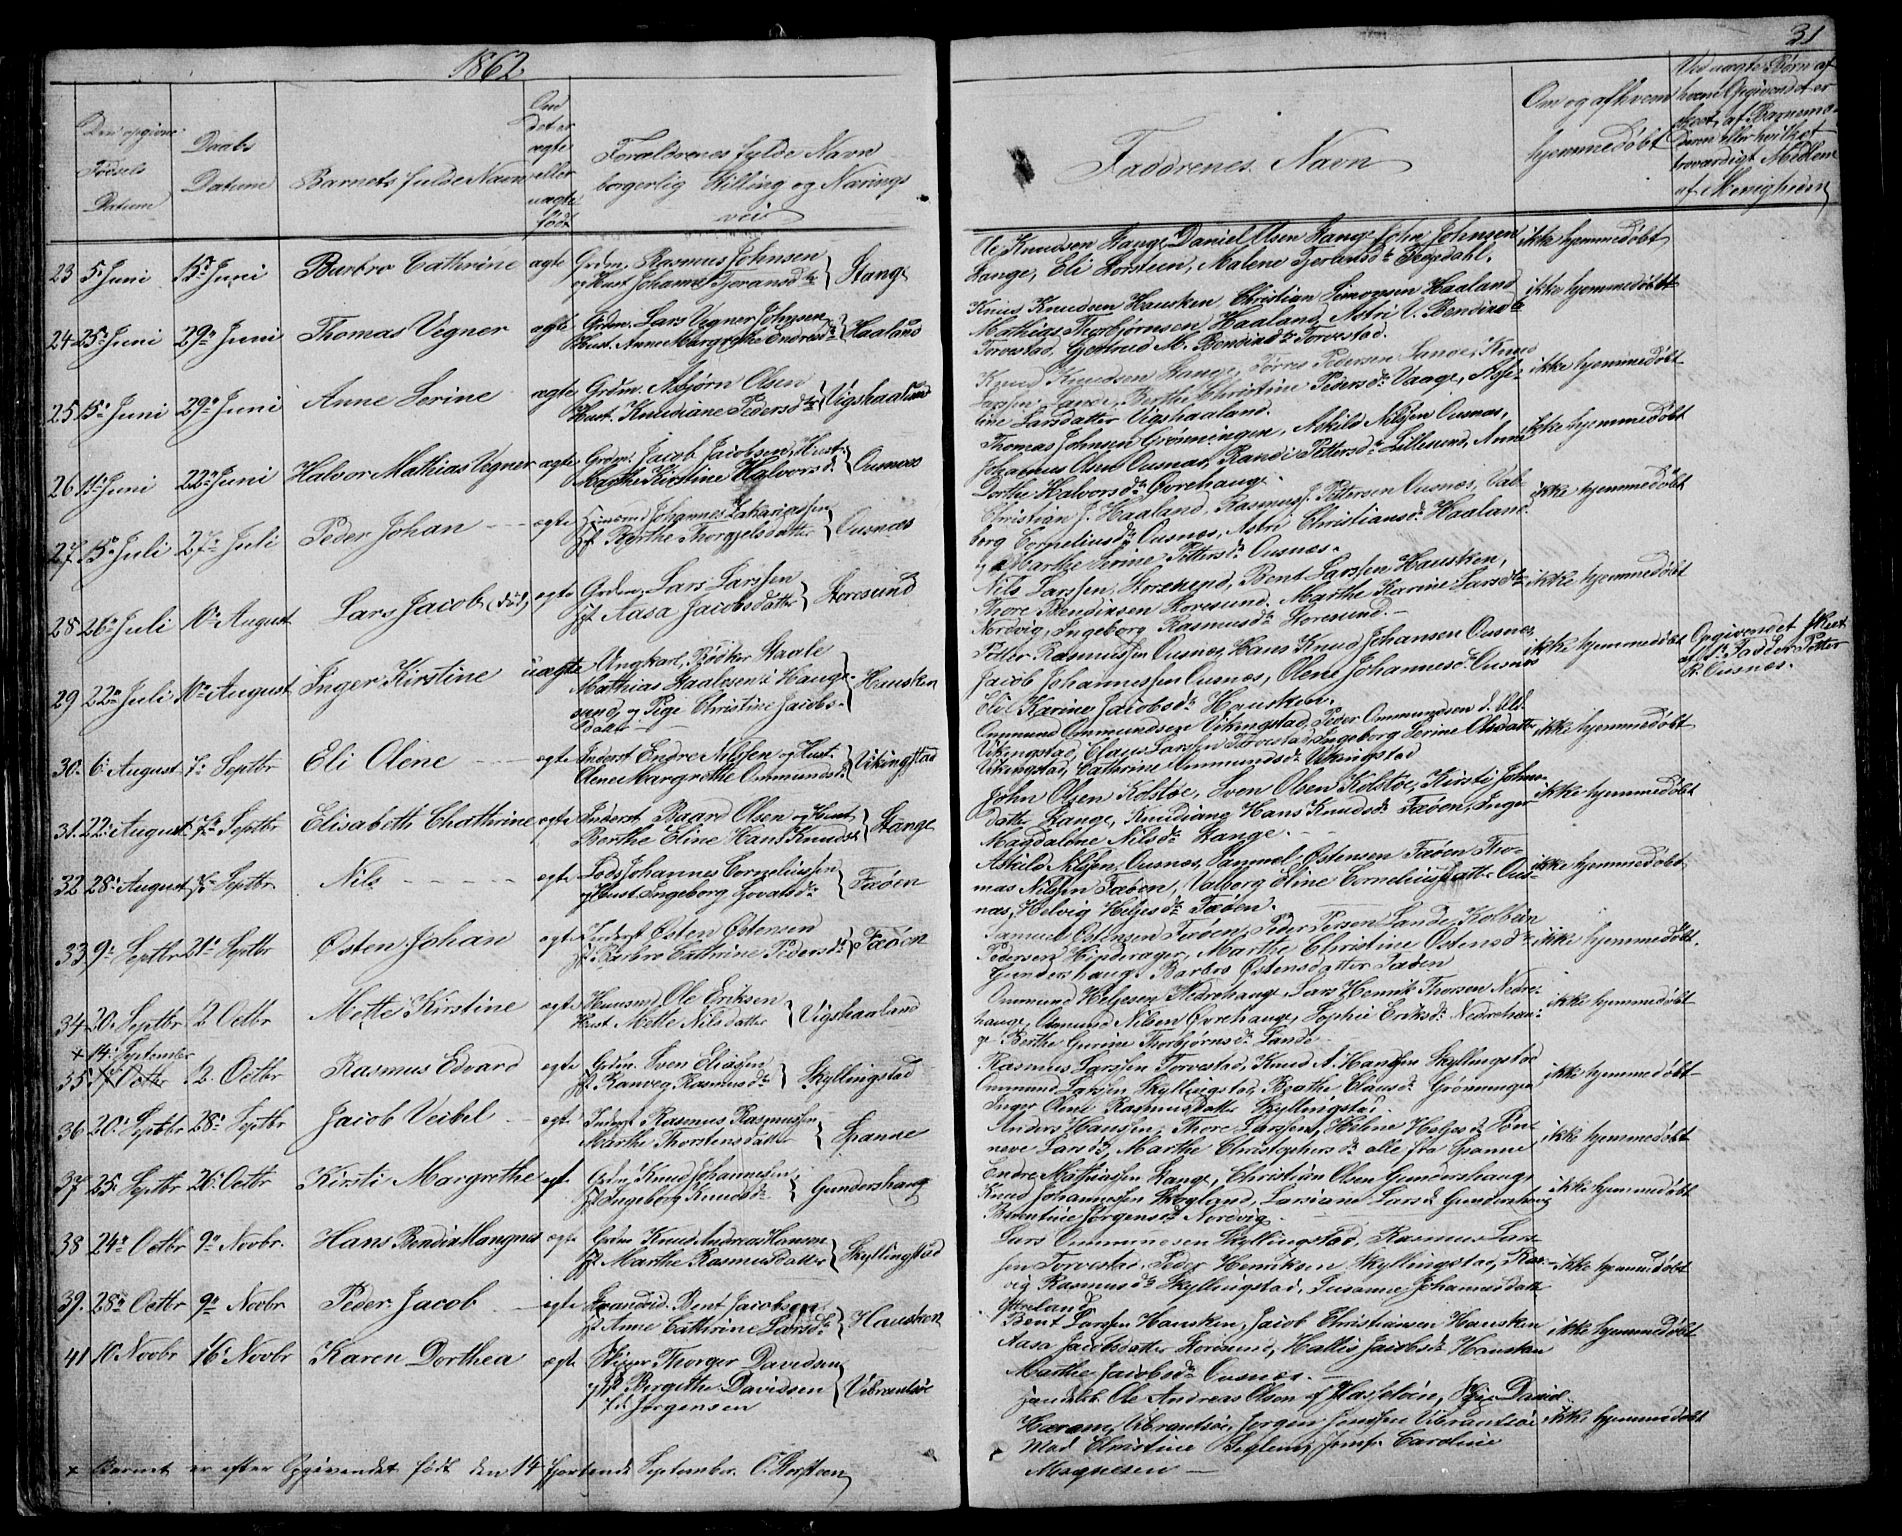 1862
31
Den opgivne
Fødsels
Datum
Daabs
Datum
Barnets fulde Navn
Om
det er
ægte
eller
uægte
født
Forældrenes fulde Navn
borgerlig Stilling og Nærings
vei
Faddrenes Navn
Om og af hvem
hjemmedøbt
Ved uægte Børn af
hvem Opgivendet er
skeet, af Barnemo-
deren eller hvilket
troværdigt Medlem
af Menigheden
23 5 Juni 15 Juni Barbro Cathrine ægte Grdm. Rasmus Johnsen
og Hust Johanna Tjeransdtr Stange
Ole Knudsen Stange, Daniel Olsen Stange, John Johnsen
Stange, Eli Storsteen, Malene
ikke hjemmedøbt
24 25 Juni 29 Juni Thomas Vegner ægte Grdm. Lars Vegner Johnsen
Hust. Anne Margrethe Endresdtr Haaland
Knud Knudsen Hausken, Christian Simonsen Haaland
Mathias Thorbjørnsen Haaland, Astri V. Bendixdtr
Torvestad, Gjertrud M. Bendixdtr Torvestad.
ikke hjemmedøbt
25 15 Juni 29 Juni Anne Serine ægte Grdm. Asbjørn Olsen
Hust. Knudiane Pedersdtr Vigshaaland
Knud Knudsen Stange, Tørres Pedersen Lande, Knud
Larssen Lande, Berthe Christine Pedersdr Vaage, Axe-
line Larsdatter Vigshaaland.
ikke hjemmedøbt
26 11 Juni 22 Juni Halvor Mathias Vegner ægte Grdm. Jacob Jacobsen, Hust.
Marthe Kirstine Halvorsd. Ousnæs
Thomas Johnsen Grønningen, Askild Nilssen Ousnæs,
Johannes Olsen Ousnæs, Randi Pettersdr Lillesund, Anne
Dorthe Halvorsdr Øvrehauge
ikke hjemmedøbt
27 15 Juli 27 Juli Peder Johan ægte Johannes Zakariassen
Hst Berthe Thorgjelsdatter Ousnæs
Christian J. Haaland, Rasmus J. Pettersen Ousnæs, Val-
borg Corneliusdr Ousnæs, Astri Christiansdr Haaland
og Marthe Serine Pettersdr Ousnæs.
ikke hjemmedøbt
28 26 Juli 10 August Lars Jacob ægte Grdm. Lars Larssen
Hst Aasa Jacobsdatter Storesund
Nils Larssen Storesund, Bent Larssen Hausken,
Thore Bendixsen Storesund, Marthe Karine Larsdtr
Nordvig, Ingeborg Rasmusdr Storesund.
ikke hjemmedøbt
29 22 Juli 10 August Inger Kirstine uægte Ungkarl, Bødker Staale
Mathias Staalesen i Hauge-
sund, og Pige Christine Jacobs-
datter Hausken
Petter Rasmussen Ousnæs, Hans Knud Johansen Ousnæs,
Jacob Johannessen Ousnæs, Olene Johannesdr Ousnæs
Eli Karine Jacobsdr Hausken.
ikke hjemmedøbt
Opgivendet skeet
af Fadder Petter
R. Ousnæs.
30 6 August 7 Septbr Eli Olene ægte Inderst Endre Nilssen og Hust.
Olene Margrethe Ommundsdr Vikingstad
Ommund Ommundsen Vikingstad, Peder Ommundsen
Vikingstad, Claus Larssen Torvestad, Ingeborg Serine Olsdatter
Vikingstad, Cathrine Ommundsdr Vikingstad
ikke hjemmedøbt
31 22 August 7 Septbr Elisabeth Chathrine ægte Inderst Baard Olsen og Hust
Berthe Eline Hans Knudsd. Stange
John Olsen Kolstøe, Sven Olsen Kolstøe, Kirsti Johns-
datter Stange, Knudiane Hans Knudsdr Faøen, Inger
Magdalene Nilsdr Stange.
ikke hjemmedøbt
32 28 August 7 Septbr Nils ægte Lods Johannes Corneliussen
og Hust Ingeborg Faøen
Askild Nilssen Ousnæs, Samuel Østensen Faøen, Tho-
mas Nilssen Faøen, Valborg Eline Corneliusdatter Ous-
næs, Helvig Heljesdr Faøen.
ikke hjemmedøbt
33 9 Septbr 21 Septbr Østen Johan ægte Inderst Østen Østensen
Hst Barbro Cathrine Pedersdr Faøen
Samuel Østensen Faøen, Peder Persen Lande, Kolbein
Pedersen, Marthe Christine Østensdr
Gundershaug, Barbro Østensdatter Faøen
ikke hjemmedøbt.
34 20 Septbr 12 Octbr Mette Kirstine ægte Huusmd Ole Eriksen
Hust Mette Nilsdatter Vigshaaland
Ommund Helgesen Nedrehauge, Lars Henrik Thorsen Nedre-
hauge, Osmund Nilsen Øvrehauge, Sophie Eriksdr Nedrehau-
ge, Berthe Gurine Thorbjørnsdr Lande
ikke hjemmedøbt
× 14 September
35 12 Octbr Rasmus Edvard ægte Grdm. Sven Eliassen
Hst Ranveg Rasmusdr Skyllingstad
Rasmus Larssen Torvestad, Knud A. Hanssen Skyllingstad
Ommund Larssen Skyllingstad, Berthe Clausdr Grønningen
Inger Olene Rasmusdatter Skyllingstad.
ikke hjemmedøbt
36 20 Septbr 28 Septbr Jacob Veibel ægte Inderst Rasmus Rasmussen
Marthe Thorstensdatter Spanne
Anders Hanssen, Thore Larssen, Helene Heljesd. Søn-
neve Larsdr, Marthe Christophersdr alle fra Spanne
ikke hjemmedøbt
37 25 Septbr 26 Octbr Kirsti Margrethe Grdm. Knud Johannessen,
Hst Ingeborg Knudsdr Gundershaug
Endre Mathiassen Stange, Christian Olsen Gundershaug,
Knud Johannessen Skogland, Lariane Larsd. Gundershaug
Berentine Jørgensdr Nordvig
ikke hjemmedøbt
38 24 Octbr 9 Novbr. Hans Bendix Mangnus ægte Grdm Knud Andreas Hansen
Hst Marthe Rasmusdatter Skyllingstad
Lars Ommundsen Skyllingstad, Rasmus Lars-
sen Torvestad, Peder Henriksen Skyllingstad, Ran-
vig Rasmusdr Skyllingstad, Susanne Johannesdatter
Ytreland
ikke hjemmedøbt
39. 28 Octbr 9 Novbr Peder Jacob ægte Bent Jacobsen
Hst Anne Cathrine Larsdr Hausken
Bent Larssen Hausken, Jacob Christiansen Hausken
Aasa Jacobsdatter Storesund, Hallis Jacobsdr Hausken
Marthe Jacobsdr Ousnæs.
ikke hjemmedøbt
41 10 Novbr 16 Novbr Karen Dorthea ægte Thorger Davidsen
Bergitte Davidsen
f. Jørgensen Vibrantsøe
Ole Andreas Olsen af Hasseløen, David
Haram, Vibrantsøe, Jørgen Jenssen Vibrandsøe
Mad Christine, Jomfr. Caroline
Magnesen
ikke hjemmedøbt
× Barnet er efter Opgivendet født den 14 fjortende September. O. Storsteen